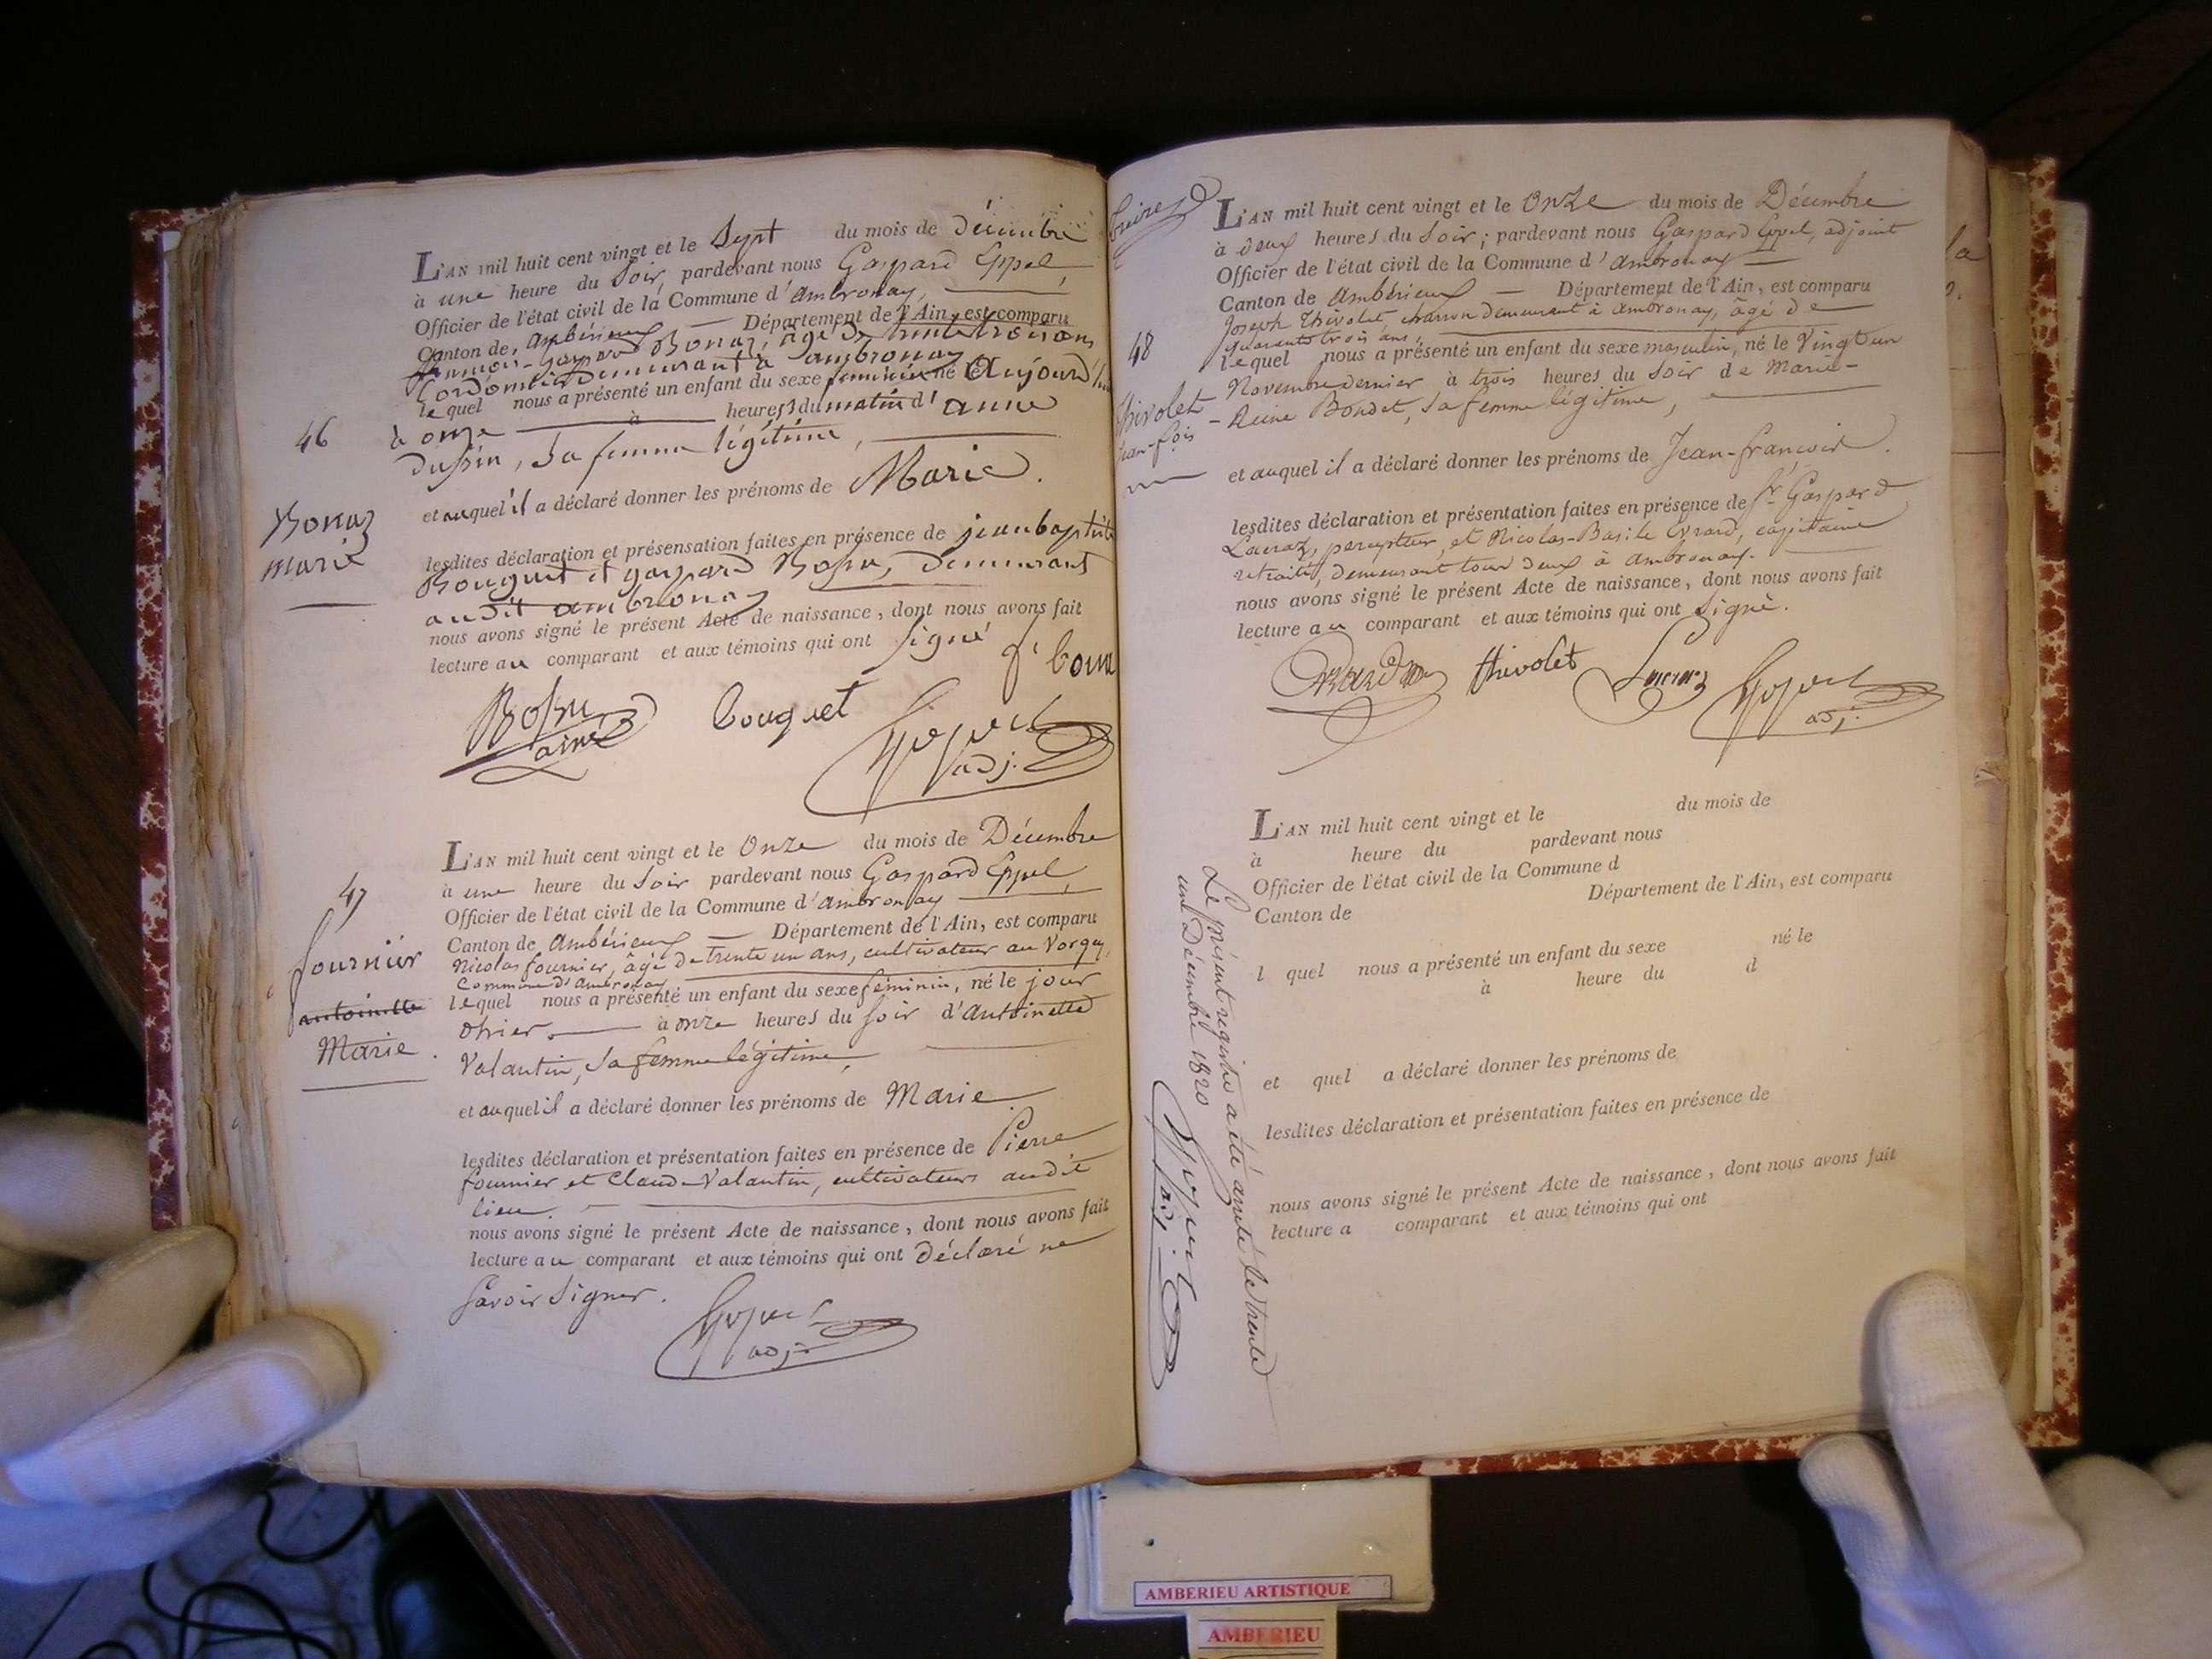 46
Bonaz
Marie
L'AN mil huit cent vingt et le Sept du mois de décembre
à une heure du Soir, pardevant nous Gaspard Eppel,
Officier de l'état civil de la Commune d'ambronay,
Canton de ambérieux Département de l'Ain, est comparu
françois-gaspard Bonaz, âgé de trente trois ans
Cordonnier Demeurant à ambronay
lequel nous a présenté un enfant du sexe féminin né le Aujourd'hui
à onze à heures du matin d'anne
dupin, Sa femme légitime,
et auquel il a déclaré donner les prénoms de Marie.
lesdites déclaration et présensation faites en présence de jean baptiste
Bouguet et gaspard Bossu, Demeurant
audit ambronay
nous avons signé le présent Acte de naissance, dont nous avons fait
lecture au comparant et aux témoins qui ont Signé
Bossu
ainé
bouquet
adj.
47
fournier
antoinette
Marie.
L'AN mil huit cent vingt et le Onze du mois de Décembre
à une heure du Soir pardevant nous Gaspard Eppel,
Officier de l'état civil de la Commune d'ambronay
Canton de Ambérieux Département de l'Ain, est comparu
Nicolas fournier, âgé de trente un ans, cultivateur au Vorgey,
Commune d'ambronay
lequel nous a présenté un enfant du sexe féminin, né le jour
d'hier, à onze heures du soir d'Antoinette
Valantin, Sa femme légitime,
et auquel il a déclaré donner les prénoms de Marie
lesdites déclaration et présentation faites en présence de Pierre
fournier et Claude Valantin, cultivateurs audit
lieu.
nous avons signé le présent Acte de naissance, dont nous avons fait
lecture au comparant et aux témoins qui ont Déclaré ne
Savoir Signer.
adj.
48
thivolet
jean-fçois
L'AN mil huit cent vingt et le Onze du mois de Décembre
à deux heures du Soir; pardevant nous Gaspard Eppel, adjoint
Officier de l'état civil de la Commune d'ambronay
Canton de Ambérieux Département de l'Ain, est comparu
Joseph Thivolet charron demeurant à ambronay, âgé de
quarante trois ans,
lequel nous a présenté un enfant du sexe masculin, né le Vingt un
Novembre dernier à trois heures du Soir de Marie-
Reine Bondet, Sa femme légitime,
et auquel il a déclaré donner les prénoms de Jean-françois.
lesdites déclaration et présentation faites en présence de Sr. Gaspard
Lacraz, percepteur, et Nicolas-Basile Evrard, capitaine
retraité, demeurant tour deux à ambronay.
nous avons signé le présent Acte de naissance, dont nous avons fait
lecture au comparant et aux témoins qui ont Signé.
thivolet
adj.
Le présent registre a été arrêté le trente
un Décembre 1820
adj.
L'AN mil huit cent vingt et le du mois de
à heure du pardevant nous
Officier de l'état civil de la Commune d
Canton de Département de l'Ain, est comparu
l quel nous a présenté un enfant du sexe né le
à heure du d
et quel a déclaré donner les prénoms de
lesdites déclaration et présentation faites en présence de
nous avons signé le présent Acte de naissance, dont nous avons fait
lecture a comparant et aux témoins qui ont
AMBERIEU ARTISTIQUE
AMBERIEU